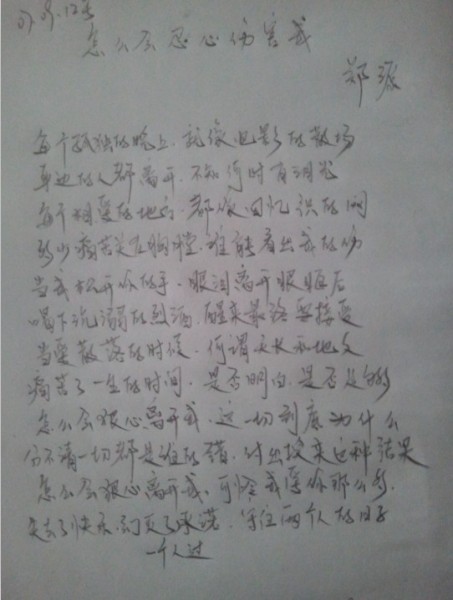 怎么会忍心伤害我
郑源
每个孤独的晚上 就像电影的散场
身边的人群离开 不知何时有泪光
每个相爱的地方 都像回忆织的网
多少痛苦关在胸膛 谁能看出我的伤
当我松开你的手 眼泪离开眼眶后
喝下沉溺的烈酒 醒来最终要接受
当爱散落的时候 何谓天长和地久
痛苦了一生的时间 是否明白 是否足够
怎么会狠心离开我 这一切到底为什么
分不清一切都是谁的错 付出换来这种结果
怎么会狠心离开我 可怜我爱你那么多
失去了快乐 守住两个人的日子
一个人过